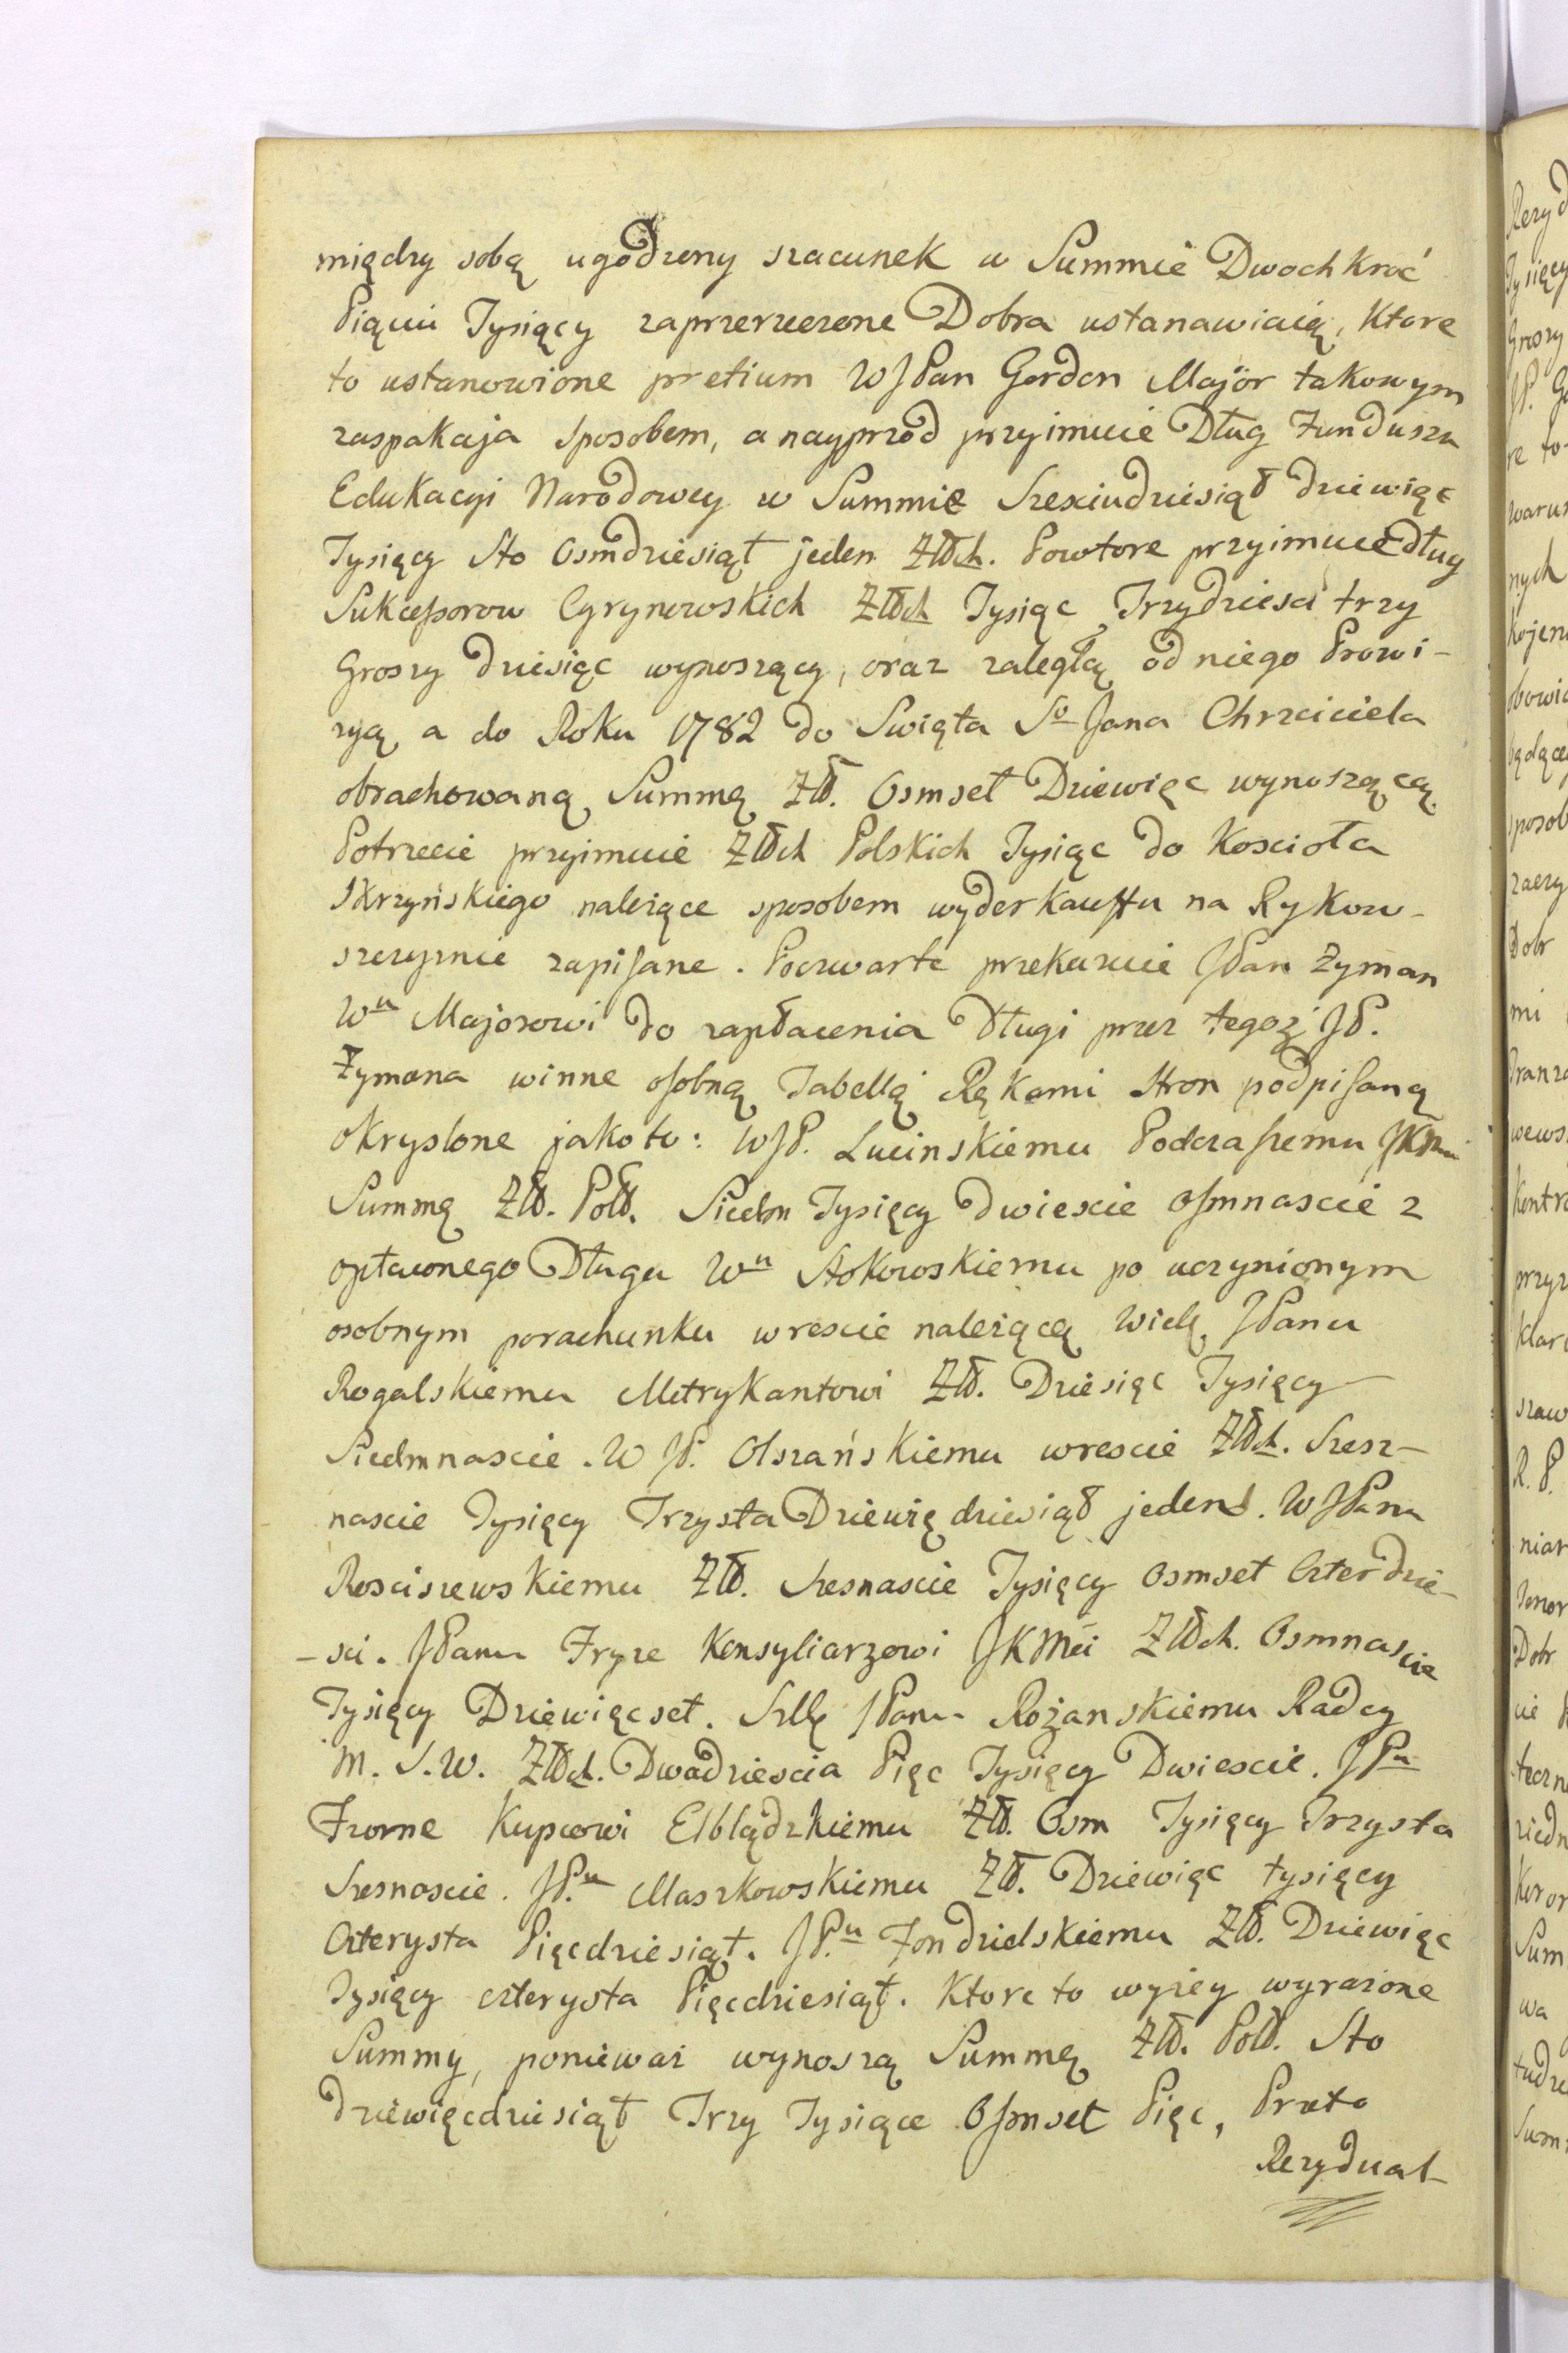 między sobą ugodzony szacunek w Summie Dwochkroć
Pięciu Tysięcy zaprzerzeczone Dobra ustanawiaią, Ktore
to ustanowione pretium WJPan Gordon Major takowym
zaspakaja sposobem, a nayprzod przyimuie Dług Funduszu
Edukacyi Narodowey w Summie Szesciudziesiąt dziewięc
Tysięcy Sto Osmdziesiąt jeden Złłch. Powtore przyimuie dług
Sukcessorow Cyrynowskich Złłch Tysiąc Trzydziesci trzy
Groszy dziesięc wynoszący, oraz zaległą od niego Prowi-
zyą a do Roku 1782 do Swięta So Jana Chrzciciela
obrachowaną Summę Złł. Osmset Dziewięc wynoszącą.
Potrzecie przyimuie Złłch Polskich Tysiąc do Koscioła
Skrzyńskiego należące sposobem wyderkauffu na Rykow-
szczyznie zapisane. Poczwarte przekazuie JPan Zyman
Wu Majorowi do zapłacenia Długi przez tegoż JP.
Zymana winne osobną Tabellą Rękami Stron podpisaną
okryslone jako to: WJP. Lucinskiemu Podczaszemu JKMci
Summę Złł. Poll. Siedm Tysięcy dwiescie osmnascie z
opłaconego Długu Wu Stokowskiemu po uczynionym
osobnym porachunku wrescie należącą Wielę JPanu
Rogalskiemu Metrykantowi Złł. Dziesięc Tysięcy
Siedmnascie. W JP. Olszańskiemu wrescie Złłch. Szesz-
nascie Tysięcy Trzysta Dziewiędziesiąt jeden. WJPanu
Rosciszewskiemu Złł. Szesnascie Tysięcy Osmset Czterdzie-
-sci. JPanu Fryze Konsyliarzowi JKMci Złłch. Osmnascie
Tysięcy Dziewięcset. Szllę JPanu Rożanskiemu Radcy
M. S. W. Złłch. Dwadziescia Pięc Tysięcy Dwiescie. JPu
Frorne Kupcowi Elblądzkiemu Złł. Osm Tysięcy Trzysta
Szesnascie. JP.u Maszkowskiemu Złł. Dziewięc tysięcy
Czterysta Pięcdziesiąt. JP.u Fondzielskiemu Złł. Dziewięc
Tysięcy czterysta Pięcdziesiąt. Ktore to wyżey wyrażone
Summy, ponieważ wynoszą Summę Złł. Poll. Sto
dziewięcdziesiąt Trzy Tysiące Osmset Pięc, Przeto
Rezyduał